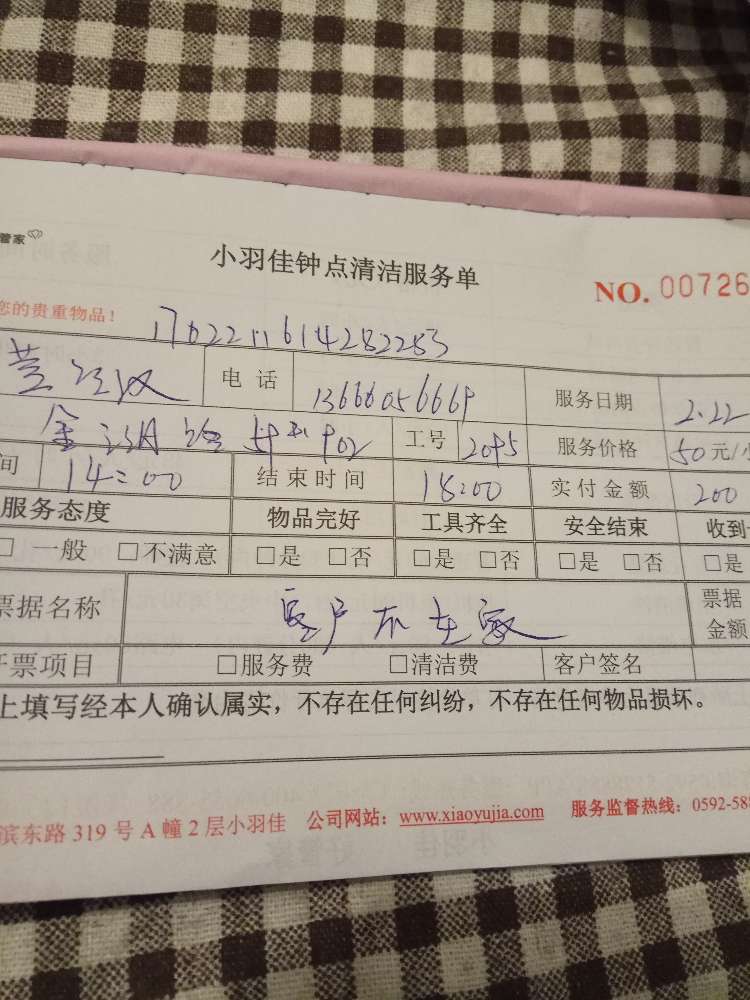 管家
小羽佳钟点清洁服务单
NO. 00726
您的贵重物品！
1702211614282253
电话 13666056669 服务日期 2.22
金湖路 902 工号 2095 服务价格 50元/小
间 14:00 结束时间 18:00 实付金额 200
服务态度 物品完好 工具齐全 安全结束 收到
□一般 □不满意 □是 □否 □是 □否 □是 □否 □是
票据名称 客户不在家 票据金额
开票项目 □服务费 □清洁费 客户签名
上填写经本人确认属实，不存在任何纠纷，不存在任何物品损坏。
滨东路 319 号 A 幢 2 层小羽佳 公司网站：www.xiaoyujia.com 服务监督热线：0592-588